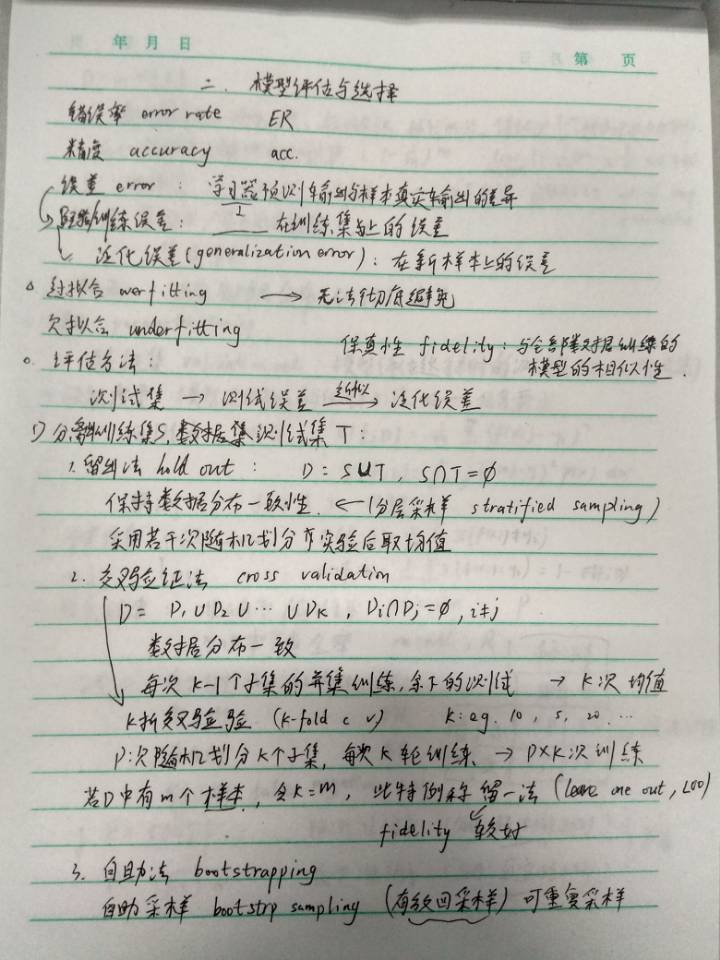 年 月 日 第 页
二、模型评估与选择
错误率 error rate ER
精度 accuracy acc.
误差 error : 学习器预测输出与样本真实输出的差异
经验/训练误差: ____ 在训练集上的误差
泛化误差(generalization error): 在新样本上的误差
过拟合 overfitting → 无法彻底避免
欠拟合 underfitting
保真性 fidelity: 与全部数据训练的
模型的相似性.
评估方法:
测试集 → 测试误差 近似→ 泛化误差
1) 分离训练集S, 数据集测试集T:
1. 留出法 hold out : D = S∪T, S∩T=∅
保持数据分布一致性. ← (分层采样 stratified sampling)
采用若干次随机划分并实验后取均值
2. 交叉验证法 cross validation
D = D₁∪D₂∪…∪Dk, Di∩Dj=∅, i≠j
数据分布一致
每次 k-1个子集的并集训练,余下的测试 → k次均值
k折交叉验验 (k-fold c v) k: eg. 10, 5, 20 …
P次随机划分k个子集, 每次k轮训练 → P×k次训练
若D中有m个样本, 令k=m, 此特例称留一法 (leave one out, LOO)
fidelity 较好
3. 自助法 bootstrapping
自助采样 bootstrp sampling (有放回采样) 可重复采样